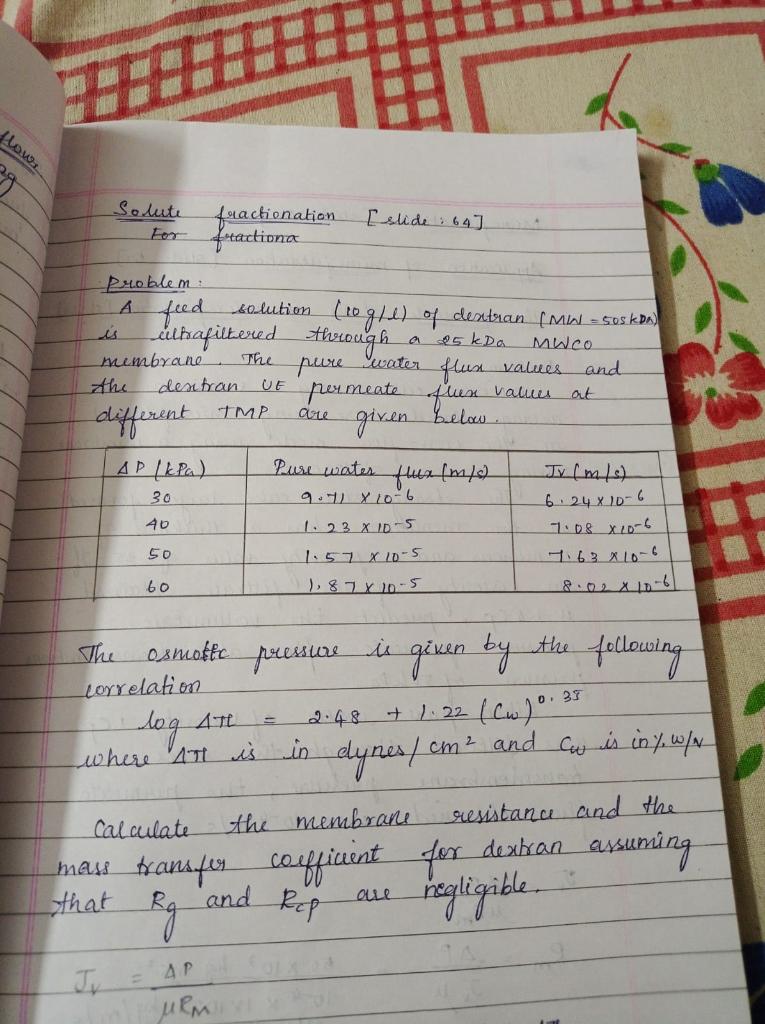 Solute fractionation [slide : 64]
For fractiona
Problem :
A feed solution (10 g/l) of dextran (MW = 505 kDa)
is ultrafiltered through a 25 kDa MWCO
membrane. The pure water flux values and
the dextran UF permeate flux values at
different TMP are given below.
ΔP (kPa) Pure water flux (m/s) Jv (m/s)
30 9.71 × 10-6 6.24 × 10-6
40 1.23 × 10-5 7.08 × 10-6
50 1.57 × 10-5 7.63 × 10-6
60 1.87 × 10-5 8.02 × 10-6
The osmotic pressure is given by the following
correlation
log Δπ = 2.48 + 1.22 (Cw)^0.35
where Δπ is in dynes/cm² and Cw is in % w/v
Calculate the membrane resistance and the
mass transfer coefficient for dextran assuming
that Rg and Rcp are negligible.
Jv = ΔP
μRM